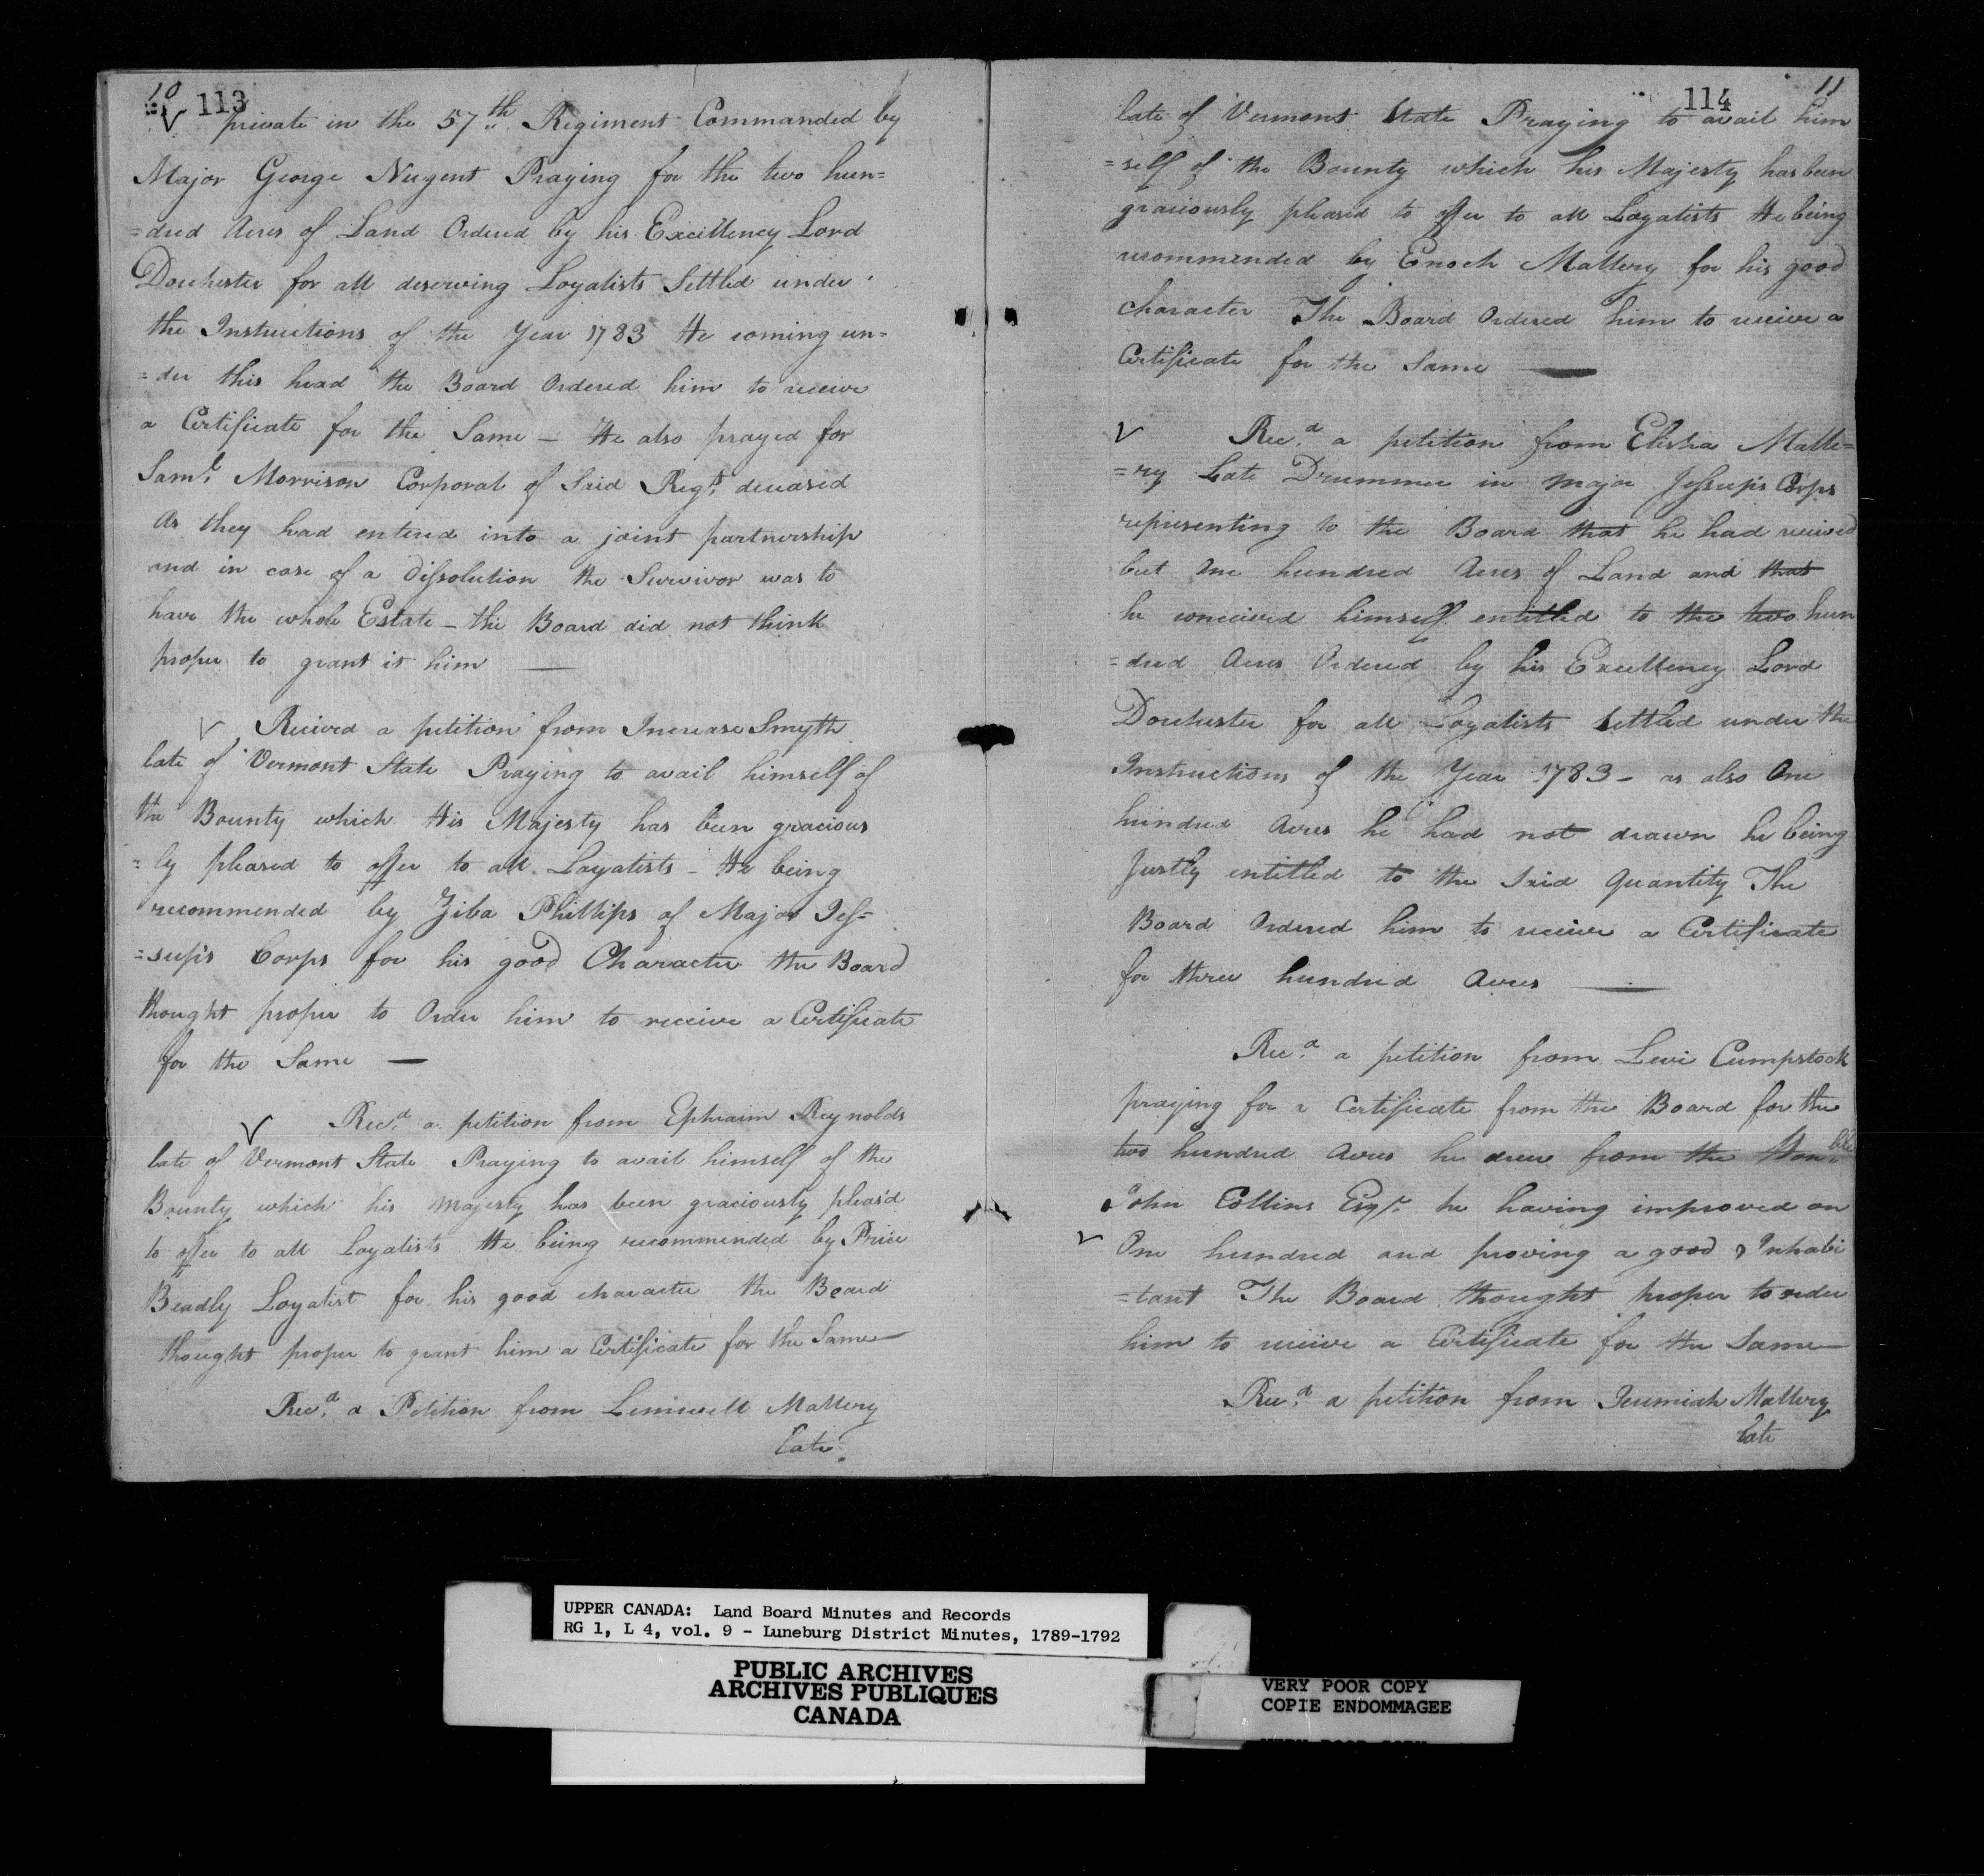 10
113
private in the 57th Regiment Commanded by
Major George Nugent Praying for the two hun=
=dred Acres of Land Ordered by his Excellency Lord
Dorchester for all deserving Loyalists Settled under
the Instructions of the Year 1783 He coming un=
=der this head the Board Ordered him to receive
a Certificate for the Same — He also prayed for
Saml. Morrison Corporal of Said Regt. deceased
As they had entered into a joint partnership
and in case of a Dissolution the Survivor was to
have the whole Estate — the Board did not think
proper to grant it him —
Received a petition from Increase Smyth
late of Vermont State Praying to avail himself of
the Bounty which His Majesty has been gracious
=ly pleased to offer to all Loyalists — He being
recommended by Ziba Phillips of Major Jes=
=sup's Corps for his good Character the Board
thought proper to Order him to receive a Certificate
for the Same —
Recd. a petition from Ephraim Reynolds
late of Vermont State Praying to avail himself of the
Bounty which his Majesty has been graciously pleas'd
to offer to all Loyalists He being recommended by Price
Beadly Loyalist for his good character the Board
thought proper to grant him a Certificate for the Same —
Recd. a Petition from Lemiwell Mallery
late
11
114
late of Vermont State Praying to avail him
=self of the Bounty which his Majesty has been
graciously pleased to offer to all Loyalists He being
recommended by Enoch Mallery for his good
character The Board Ordered him to receive a
Certificate for the Same —
Recd. a petition from Elisha Malle=
=ry Late Drummer in Major Jessup's Corps
representing to the Board that he had received
but One hundred Acres of Land and that
he conceived himself entitled to the two hun
=dred Acres Ordered by his Excellency Lord
Dorchester for all Loyalists Settled under the
Instructions of the Year 1783 — as also One
hundred Acres he had not drawn he being
Justly entitled to the Said Quantity The
Board Ordered him to receive a Certificate
for three hundred Acres —
Recd. a petition from Levi Cumpstock
praying for a Certificate from the Board for the
two hundred Acres he drew from the Honble
John Collins Esqr. he having improved on
One hundred and proving a good Inhabi
=tant The Board thought proper to order
him to receive a Certificate for the Same —
Recd. a petition from Jeremiah Mallery
late
UPPER CANADA: Land Board Minutes and Records
RG 1, L 4, vol. 9 - Luneburg District Minutes, 1789-1792
PUBLIC ARCHIVES
ARCHIVES PUBLIQUES
CANADA
VERY POOR COPY
COPIE ENDOMMAGEE
VERY POOR COPY